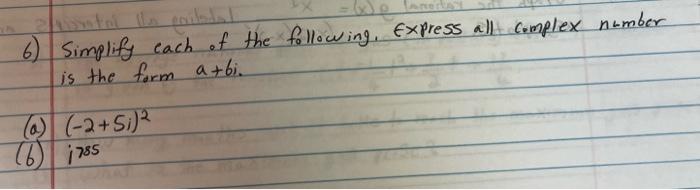 6) Simplify each of the following. Express all complex number
is the form a+bi.
(a) (-2+5i)²
(b) i⁷⁸⁵